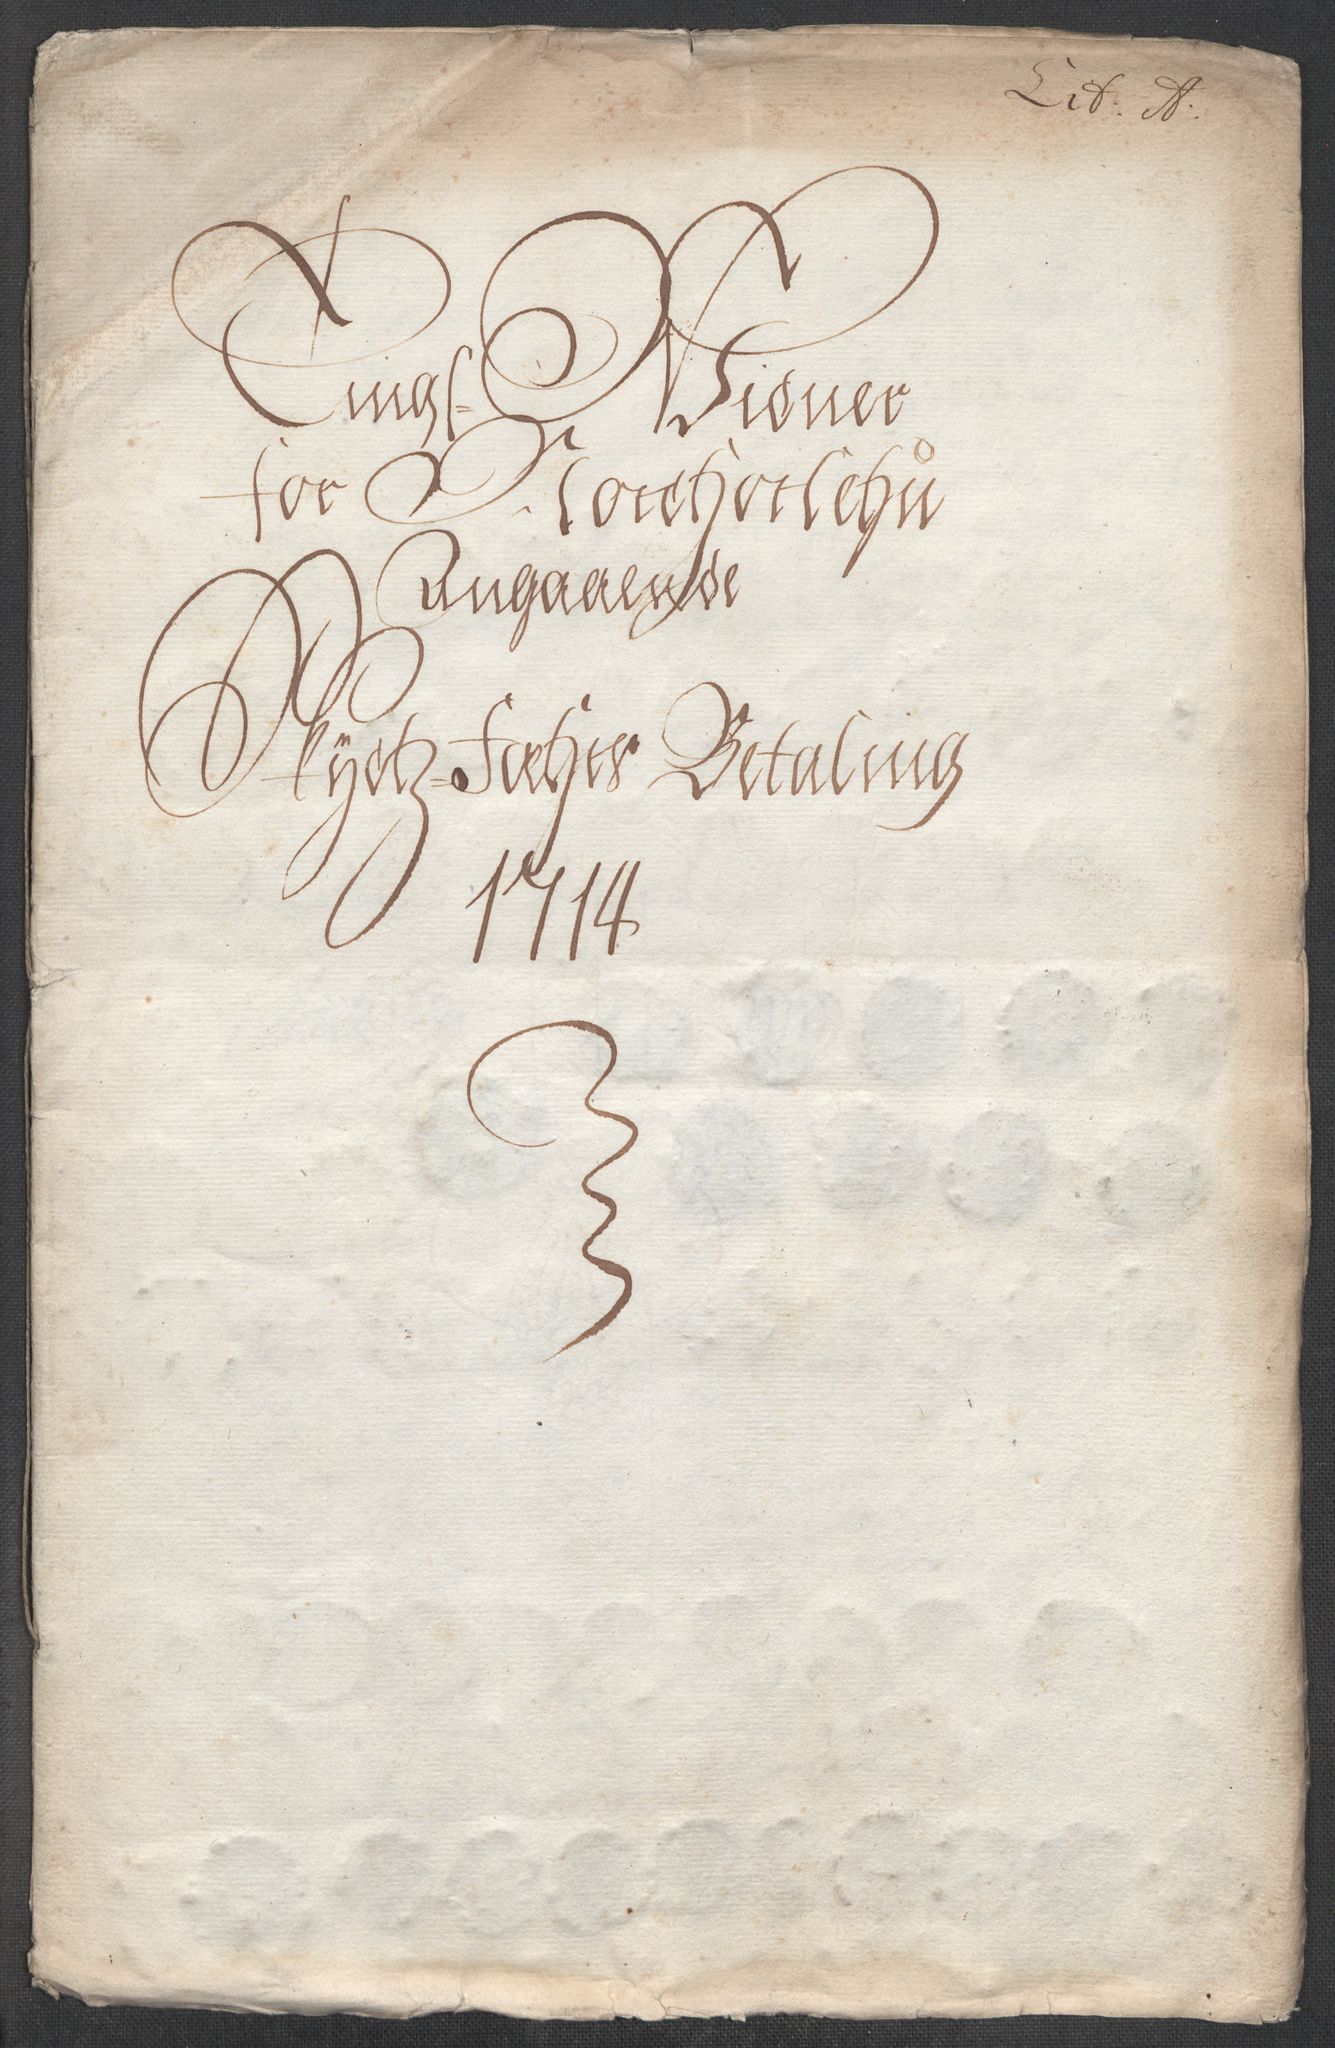 Lit. A.
Tings- Widner
for Nordhorlehn
Angaaende
Skydtz-Færds Betaling
1714